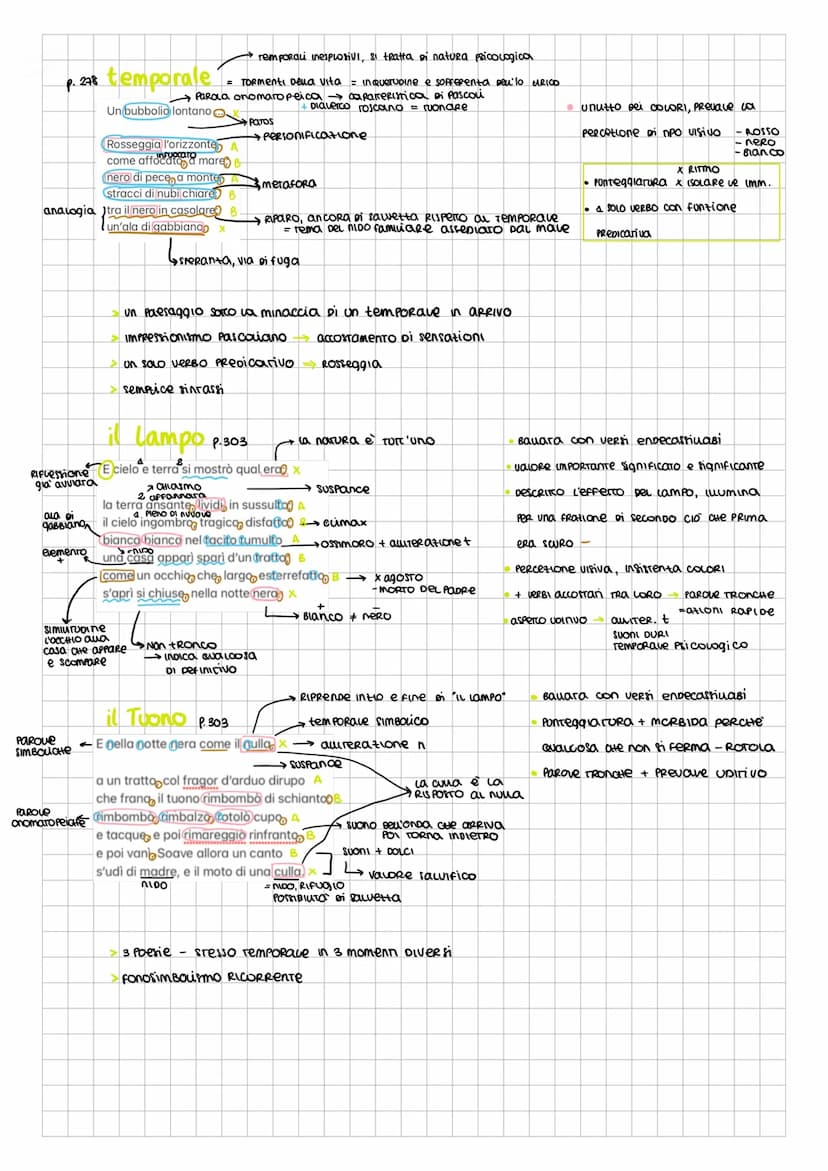 → temporali inesplosivi, si tratta di natura psicologica
p. 278 temporale = tormenti della vita = inquietudine e sofferenza dell'io lirico
→ parola onomatopeica → caratteristica di Pascoli
+ dialetto toscano = tuonare
Un bubbolìo lontano... X
→ patos
Rosseggia l'orizzonte, A → personificazione
infuocato
come affocato, a mare; B
nero di pece, a monte, A
→ metafora
stracci di nubi chiare: B
analogia
tra il nero in casolare; B → riparo, ancora di salvezza rispetto al temporale
un'ala di gabbiano. X = tema del nido familiare assediato dal male
↳ speranza, via di fuga
• unutto dei colori, prevale la
percezione di tipo visivo - rosso
- nero
- bianco
x ritmo
• punteggiatura x isolare le imm.
• 1 solo verbo con funzione
predicativa
> un paesaggio sotto la minaccia di un temporale in arrivo
> impressionismo pascoliano → accostamento di sensazioni
> un solo verbo predicativo → rosseggia
> semplice sintassi
il Lampo p.303 → la natura è tutt'uno
A B
riflessione già avviata ← E cielo e terra si mostrò qual era: X
→ chiasmo → suspance
2 affannata
la terra ansante, livida, in sussulto; A
1 pieno di nuvole
il cielo ingombro, tragico, disfatto: B → climax
ala di gabbiano
bianca bianca nel tacito tumulto A → ossimoro + alliterazione t
elemento +
→ nido
una casa apparì sparì d'un tratto; B
come un occhio, che, largo, esterrefatto, B → x agosto
- morto del padre
s'aprì si chiuse, nella notte nera. X
+ -
↳ bianco ≠ nero
similitudine
l'occhio alla
casa che appare
e scompare
↳ non tronco
→ indica qualcosa
di definitivo
• ballata con versi endecasillabi
• valore importante significato e significante
• descritto l'effetto del lampo, illumina
per una frazione di secondo ciò che prima
era scuro -
• percezione visiva, insistenza colori
• + verbi accostati tra loro → parole tronche
= azioni rapide
• aspetto uditivo → alliter. t
suoni duri
temporale psicologico
→ riprende inizio e fine di "il lampo"
il Tuono p.303 → temporale simbolico
parole simboliche ← E nella notte nera come il nulla, X → alliterazione n
→ suspance
a un tratto, col fragor d'arduo dirupo A
→ la culla è la
risposto al nulla
che frana, il tuono rimbombò di schianto: B
parole onomatopeiche ← rimbombò, rimbalzò, rotolò cupo, A
→ suono dell'onda che arriva
poi torna indietro
e tacque, e poi rimareggiò rinfranto, B
e poi vanì. Soave allora un canto B suoni + dolci
s'udì di madre, e il moto di una culla. X ↳ valore salvifico
nido = nido, rifugio
possibilità di salvezza
• ballata con versi endecasillabi
• punteggiatura + morbida perché
qualcosa che non si ferma - rotola
• parole tronche + prevale uditivo
> 3 poesie - stesso temporale in 3 momenti diversi
> fonosimbolismo ricorrente